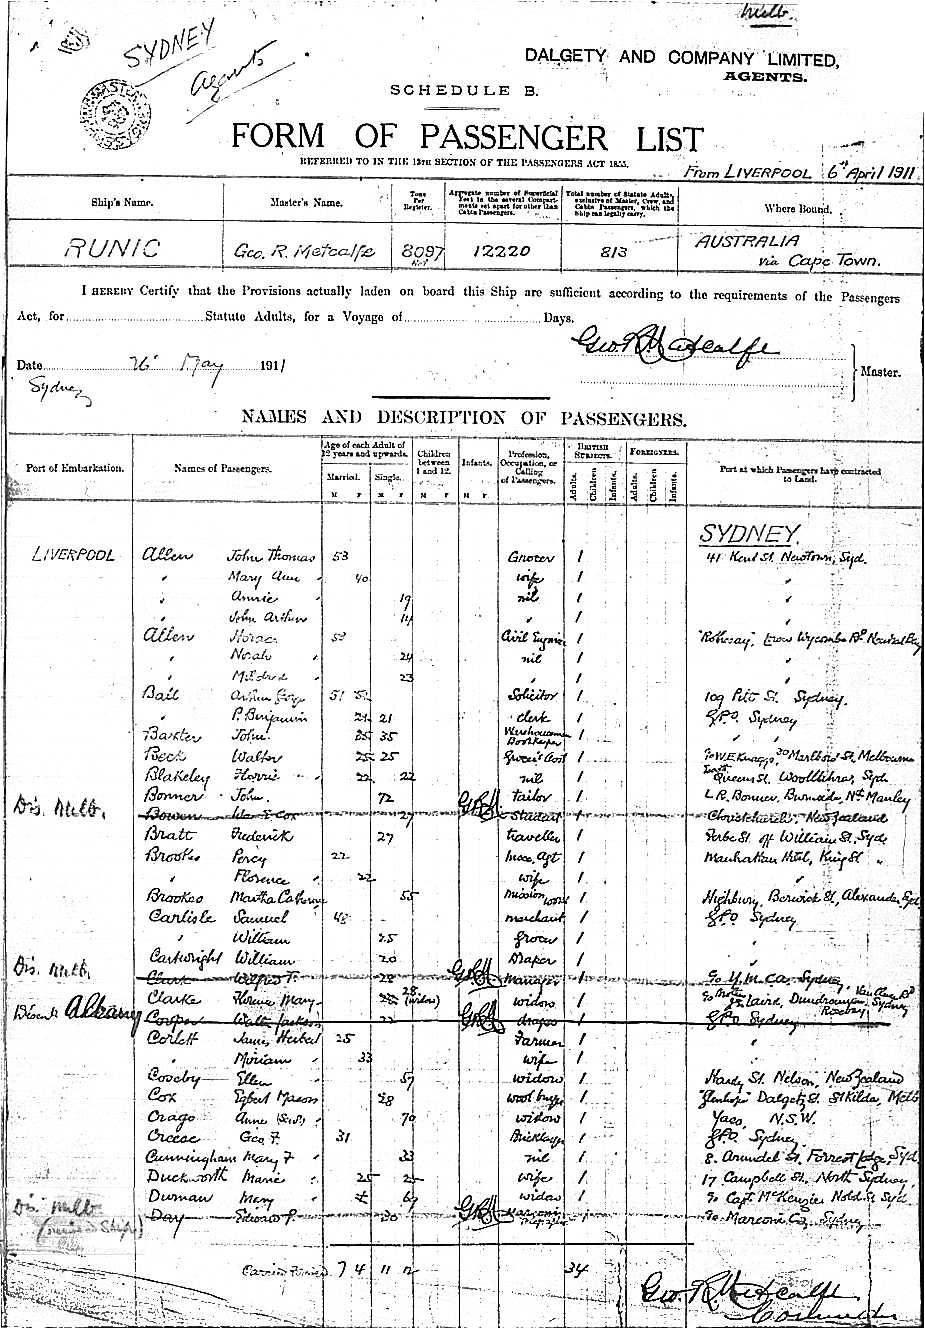 Melb.
SYDNEY
Agents
DALGETY AND COMPANY LIMITED,
AGENTS.
SCHEDULE B.
FORM OF PASSENGER LIST
REFERRED TO IN THE 13TH SECTION OF THE PASSENGERS ACT 1855.
From LIVERPOOL 6th April 1911
Ship's Name. Master's Name. Tons Per Register. Aggregate number of Superficial Feet in the several Compartments set apart for other than Cabin Passengers. Total number of Statute Adults, exclusive of Master, Crew, and Cabin Passengers, which the Ship can legally carry. Where Bound.
RUNIC Geo. R. Metcalfe 8097 Net 12220 813 AUSTRALIA via Cape Town.
I HEREBY Certify that the Provisions actually laden on board this Ship are sufficient according to the requirements of the Passengers
Act, for Statute Adults, for a Voyage of Days.
Geo R Metcalfe
Date 26 May 1911 Master.
Sydney
NAMES AND DESCRIPTION OF PASSENGERS.
Port of Embarkation. Names of Passengers. Age of each Adult of 12 years and upwards. Married. Single. Children between 1 and 12. Infants. Profession, Occupation, or Calling of Passengers. BRITISH SUBJECTS. Adults. Children Infants. FOREIGNERS. Adults. Children Infants. Port at which Passengers have contracted to Land.
M F M F M F M F
SYDNEY.
LIVERPOOL Allen John Thomas 53 Grocer 1 41 Kent St. Newtown, Syd.
" Mary Ann 40 wife 1 "
" Annie 19 nil 1 "
" John Arthur 14 " 1 "
Allen Horace 53 Civil Engineer 1 Wycombe Rd Neutral Bay
" Norah 24 nil 1 "
" Mildred 23 " 1 "
Ball Arthur George 51 Solicitor 1 109 Pitt St. Sydney.
" P. Benjamin 21 21 clerk 1 GPO Sydney
Baxter John 25 35 Warehouseman Bookkeeper 1 " "
Beck Walter 25 25 Grocer's Asst 1 Marlboro St. Melbourne
Blakeley Florrie 22 22 nil 1 Queen St. Woollahra, Syd
Bonner John. 72 tailor 1 L.R. Bonner, Burnside, Nth Manley
Dis. Melb. Bowen Cox 27 GRM student 1 Christchurch, New Zealand
Bratt Frederick 27 traveller 1 Forbes St. off William St. Syd
Brookes Percy 22 Agt 1 Manhattan Hotel, King St "
" Florence 22 wife 1 "
Brookes Martha Catherine 55 Mission work 1 Highbury, Berwick St, Alexandra, Syd
Carlisle Samuel 48 merchant 1 GPO Sydney
" William 25 grocer 1 "
Cartwright William 20 Draper 1 "
Dis. Melb. Clark Wilfred F. 28 GRM manager 1 c/o Y.M.C.A. Sydney
Clarke Florence Mary 28 (widow) widow 1 Laird, Sydney
Albany Cooper Walter Jackson 22 GRM draper 1 GPO Sydney
Corlett James Herbert 25 Farmer 1 "
" Miriam 33 wife 1 "
Coveby Ellen 57 widow 1 Hardy St. Nelson, New Zealand
Cox Egbert Mason 28 wool buyer 1 Dalgety St. St Kilda, Melb
Crago Anne 70 widow 1 Yass, N.S.W.
Creese Geo F. 31 Bricklayer 1 GPO Sydney
Cunningham Mary F 33 nil 1 8. Arundel St. Forrest Lodge, Syd
Duckworth Marie 25 25 wife 1 17 Campbell St. North Sydney,
Durnan Mary 67 widow 1 c/o Capt McKenzie Syd
Dis. Melb. Day Edward P. 30 GRM Marconi 1 c/o Marconi Co, Sydney
Carried Forward 7 4 11 12 34
Geo R Metcalfe